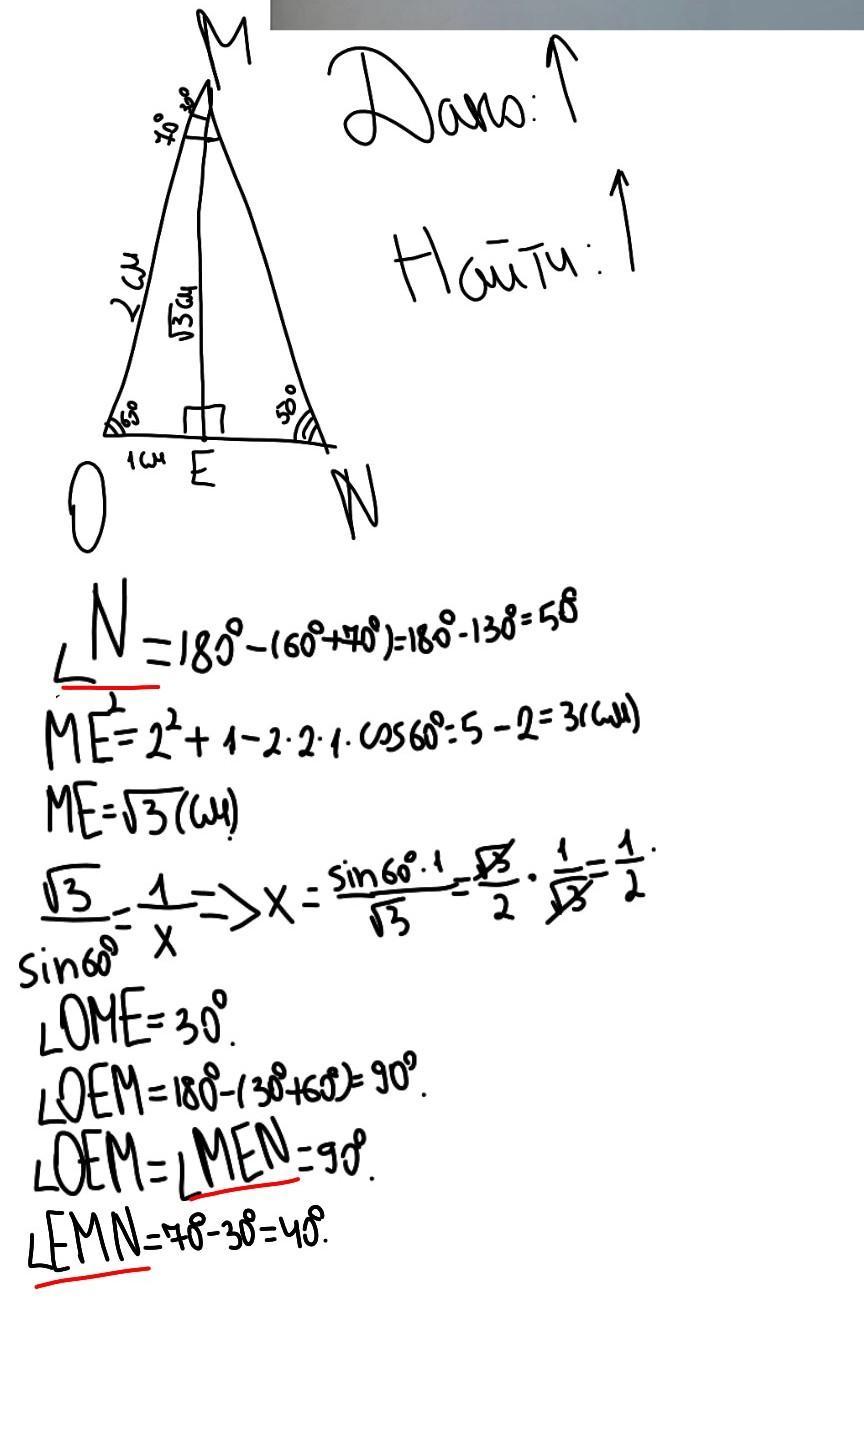 M
Дано: ↑
30°
70°
Найти: ↑
2 см
√3 см
60°
50°
1 см
O
E
N
∠N = 180° - (60° + 70°) = 180° - 130° = 50°
ME² = 2² + 1 - 2·2·1·cos60° = 5 - 2 = 3 (см)
ME = √3 (см)
√3/sin60° = 1/x => x = sin60°·1/√3 = √3/2 · 1/√3 = 1/2.
∠OME = 30°.
∠OEM = 180° - (30° + 60°) = 90°.
∠OEM = ∠MEN = 90°.
∠EMN = 70° - 30° = 40°.